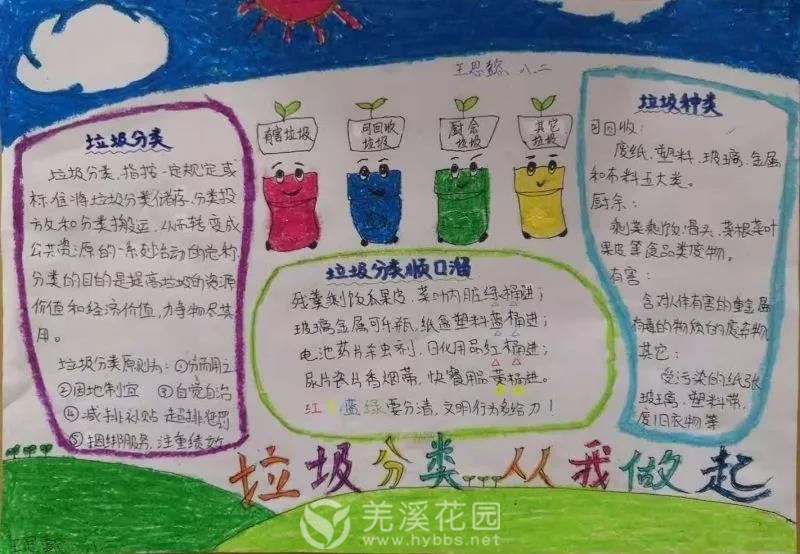 王思懿 八二
垃圾分类
垃圾分类，指按一定规定或
标准将垃圾分类储存、分类投
放和分类搬运，从而转变成
公共资源的一系列活动的总称
分类的目的是提高垃圾的资源
价值和经济价值，力争物尽其
用。
垃圾分类原则为：①分而用之
②因地制宜 ③自觉自治
④减排补贴 超排惩罚
⑤捆绑服务，注重绩效
有害垃圾
可回收
垃圾
厨余
垃圾
其它
垃圾
垃圾分类顺口溜
残羹剩饭瓜果皮，菜叶内脏绿桶进；
玻璃金属可乐瓶，纸盒塑料蓝桶进；
电池药片杀虫剂，日化用品红桶进；
尿片瓷片香烟蒂，快餐用品黄桶进。
红 蓝绿要分清，文明行为多给力！
垃圾种类
可回收：
废纸、塑料、玻璃、金属
和布料五大类。
厨余：
剩菜剩饭、骨头、菜根菜叶
果皮等食品类废物。
有害：
含对人体有害的重金属
有毒的物质的废弃物
其它：
受污染的纸张
玻璃、塑料带、
废旧衣物等
垃圾分类…从我做起
羌溪花园
www.hybbs.net